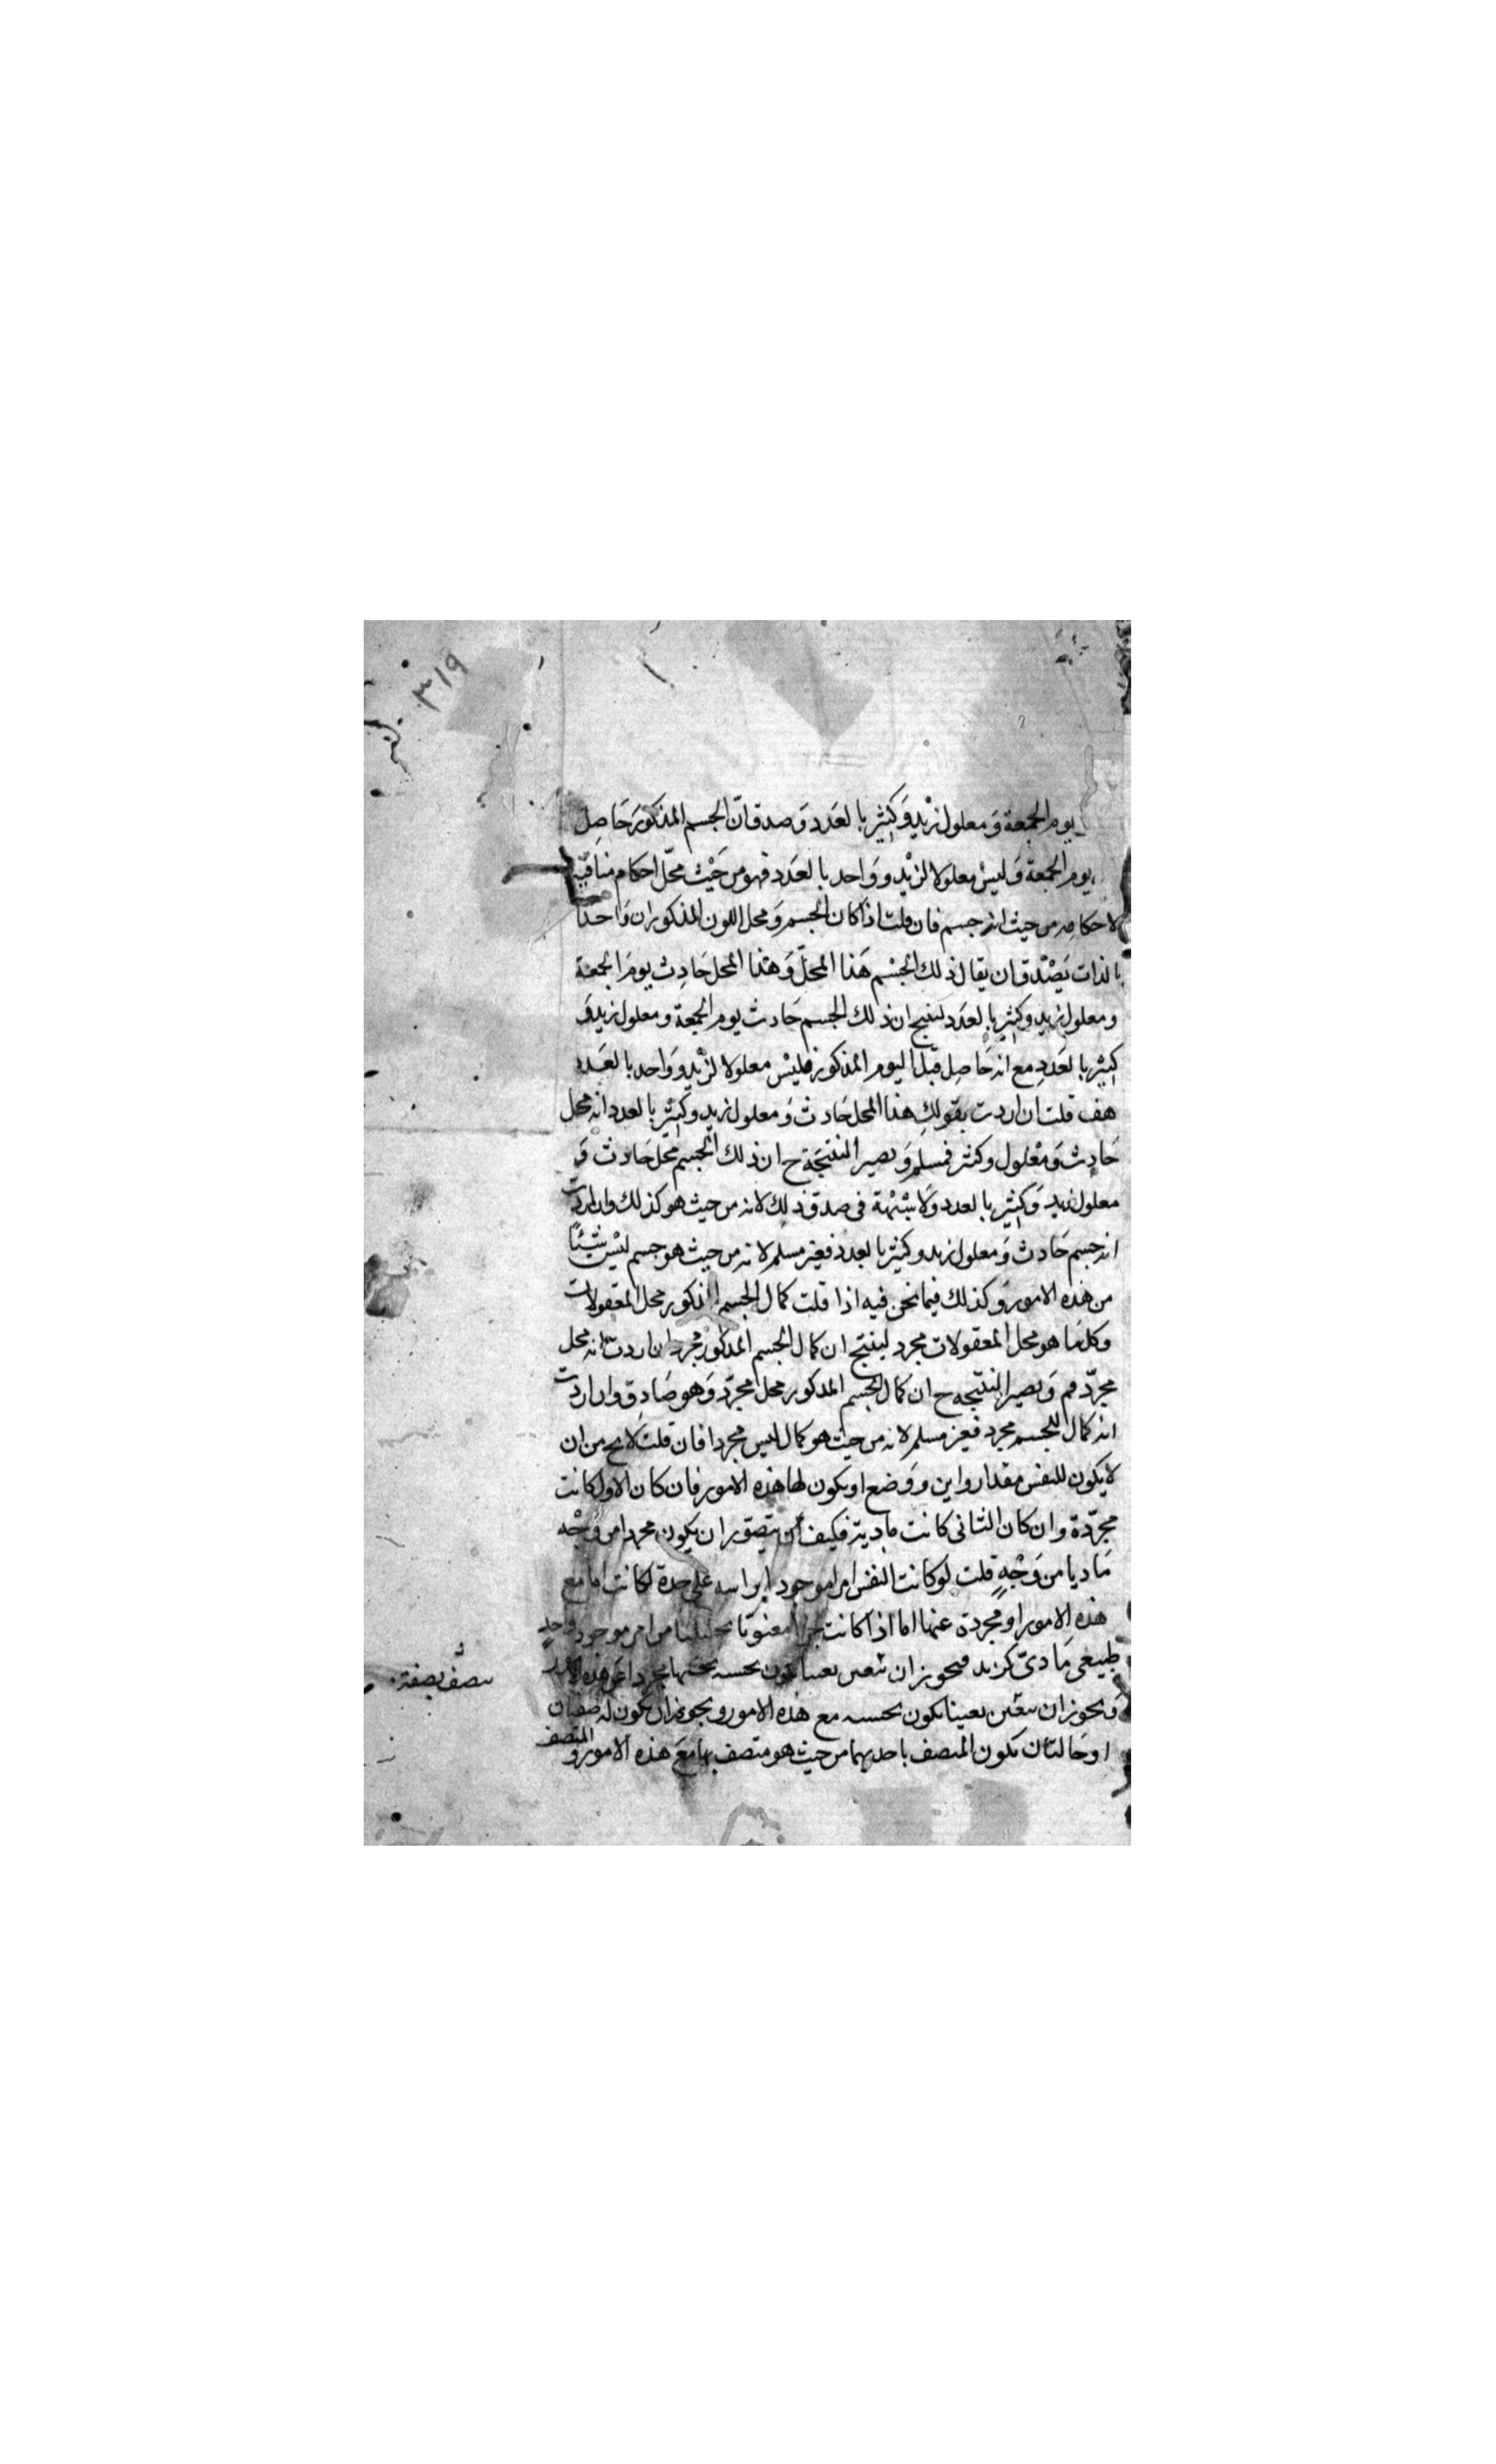 ٣١٩
يوم الجمعة وَمعلول زيْدٍ وَكثير بالعَدد وَصدق انّ الجسم المذكورَ حَاصِل
يوم الجمعة وَليسْ معلولا لزيْد ووَاحد بالعَدد فهو من حَيْث محّل احكام منافيّة
لاحكامه من حيث انه جسم فان قلت اذا كان الجسم وَمحل اللون المذكوران وَاحدا
بالذات يَصْدّق ان يقال ذلك الجسْم هَذا المحلّ وَهذا المحل حَادِث يومَ الجمعة
ومعلول زيد وكثير بالعَدد لينتج ان ذلك الجسم حَادث يوم الجمعة ومعلول زيد وَ
كثير بالعَددِ مع انه حَاصِل قبْل اليوم المذكور فليسْ معلولا لزيْدٍ وَوَاحد بالعَدد
هف قلت ان اردت بقولكِ هذا المحل حَادث وَمعلول زيد وكثير بالعدد انه محل
حَادِث وَمعْلول وكثير فمسلم وَيصير النتيجَة ح ان ذلك الجسم محّل حَادث وَ
معلول زيد وَكثير بالعدد وَلا شبْهة فى صدق ذلك لانه من حيث هو كذلك وان اردت
انه جسم حَادث وَمعلول زيد وكثير بالعدد فغير مسلم لانه من حيث هو جسم ليسْ شيْئاً
من هذه الامور وَكذلك فيما نحن فيه اذا قلت كمال الجسم المذكور محل المعقولات
وكلمَا هو محل المعقولات مجرد لينتج ان كمال الجسم المذكور مجرد ان اردت انه محل
مجرّد فم وَيصير النتيجه ح ان كمال الجسم المذكور محل مجرّد وَهو صَادِق وان اردت
انه كمال للجسم مجرد فغير مسلم لانه من حيث هو كمال ليس مجردا فان قلت لا يخ من ان
لا يكون للنفس مقدار واين ووَضع او يكون لها هذه الامور فان كان الاول كانت
مجرّدة وان كان الثانى كانت مادية فكيف يتصوّر ان يكون مجردا من وَجْه
مَاديا من وَجْهٍ قلت لو كانت النفس امرا موجودا براسه على حدة لكانت اما مع
هذه الامور او مجردة عنها اما اذا كانت جزءا معنويّا تحليليا من امر موجود واحدٍ
طبيعى مَادىّ كزيد فيجوز ان تتعين تعينا يكون بحسبه مجردا عن هذه الامور
وَيجوز ان يتعّين تعينا يكون بحسبه مع هذه الامور ويجوز ان يكون له صفتان
او حَالتان يكون المتصف باحديهما من حيث هو متصف بها معَ هذه الامور و المتصف
يتصّف بصفة